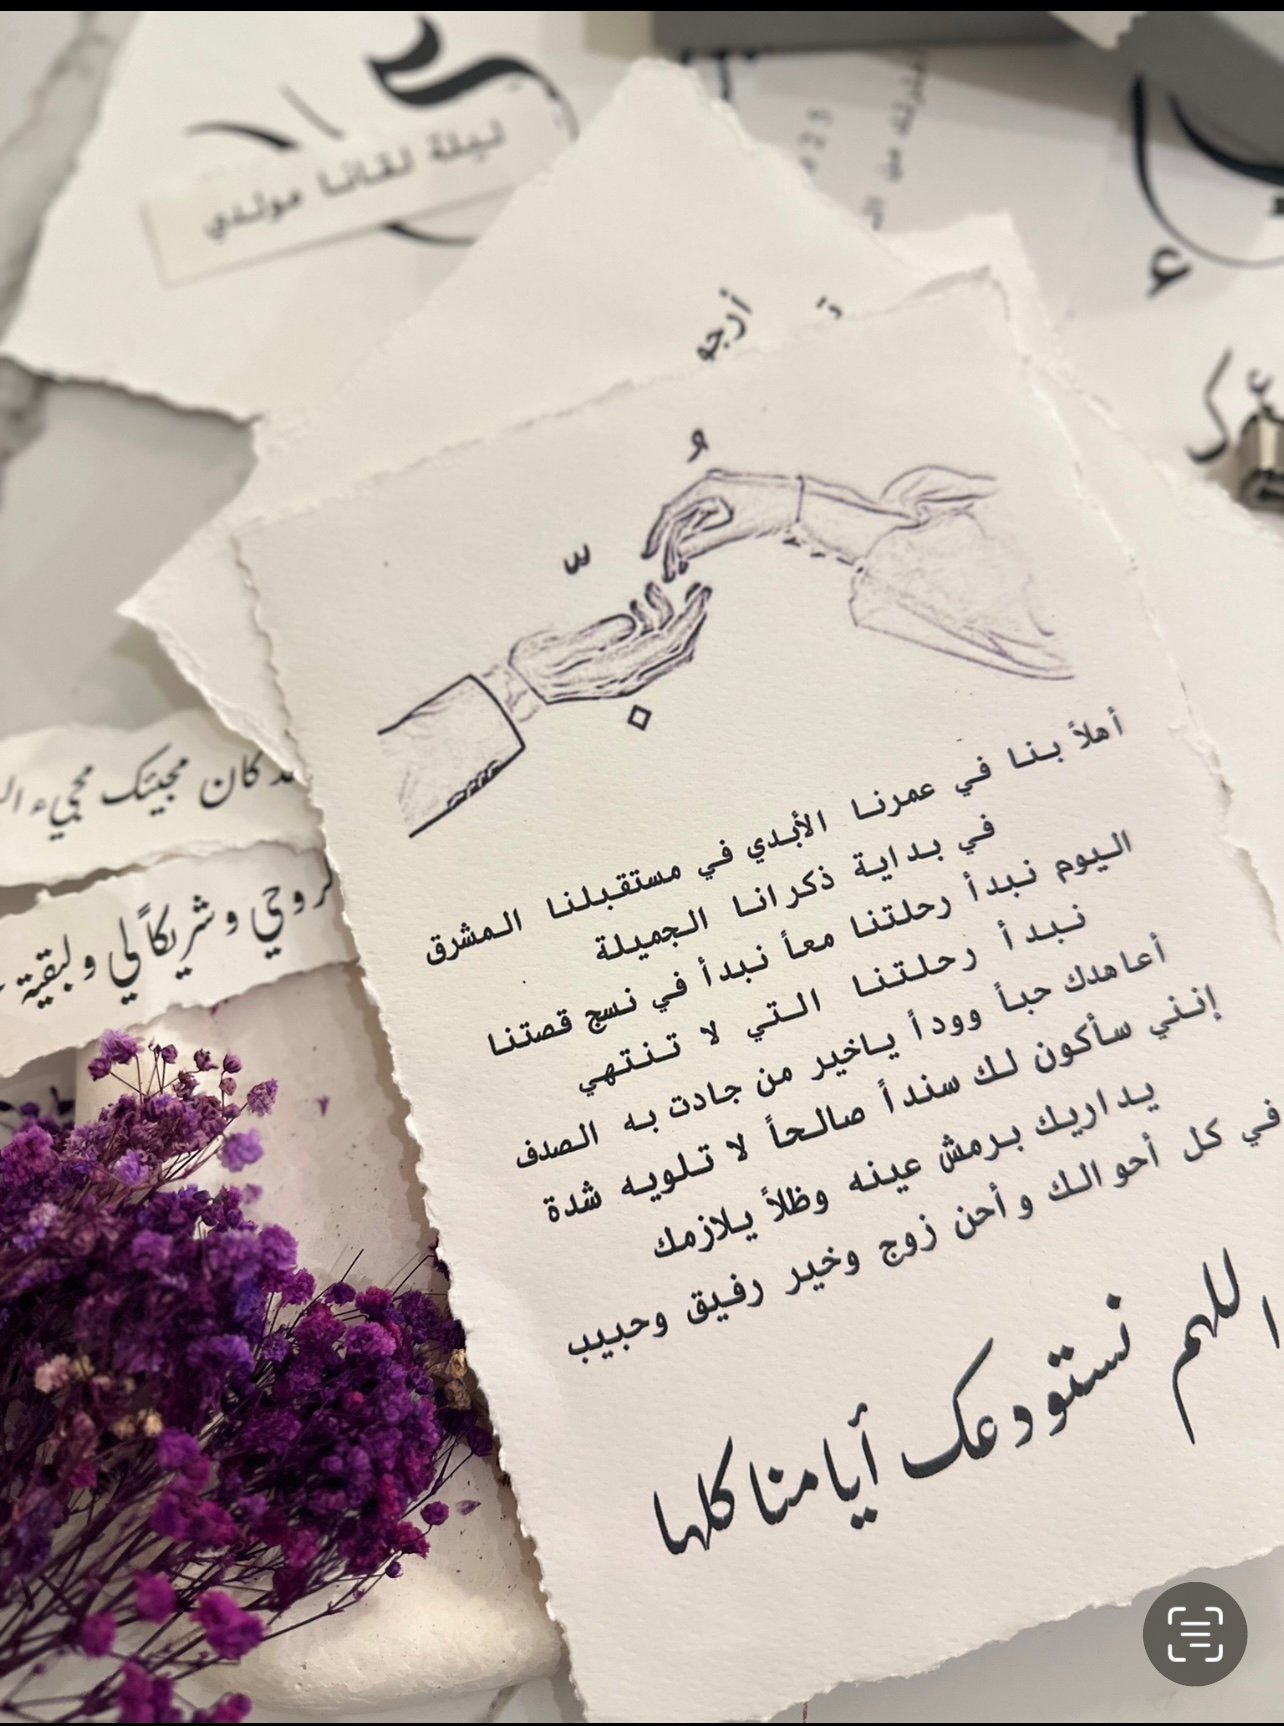 ليلة لقانا مولدي
أرجو
كان مجيئك مجيء
لروحي وشريكاً لي ولبقية
أهلاً بنا في عمرنا الأبدي في مستقبلنا المشرق
في بداية ذكرانا الجميلة
اليوم نبدأ رحلتنا معاً نبدأ في نسج قصتنا
نبدأ رحلتنا التي لا تنتهي
أعاهدك حباً ووداً ياخير من جادت به الصدف
إنني سأكون لك سنداً صالحاً لا تلويه شدة
يداريك برمش عينه وظلاً يلازمك
في كل أحوالك وأحن زوج وخير رفيق وحبيب
اللهم نستودعك أيامنا كلها